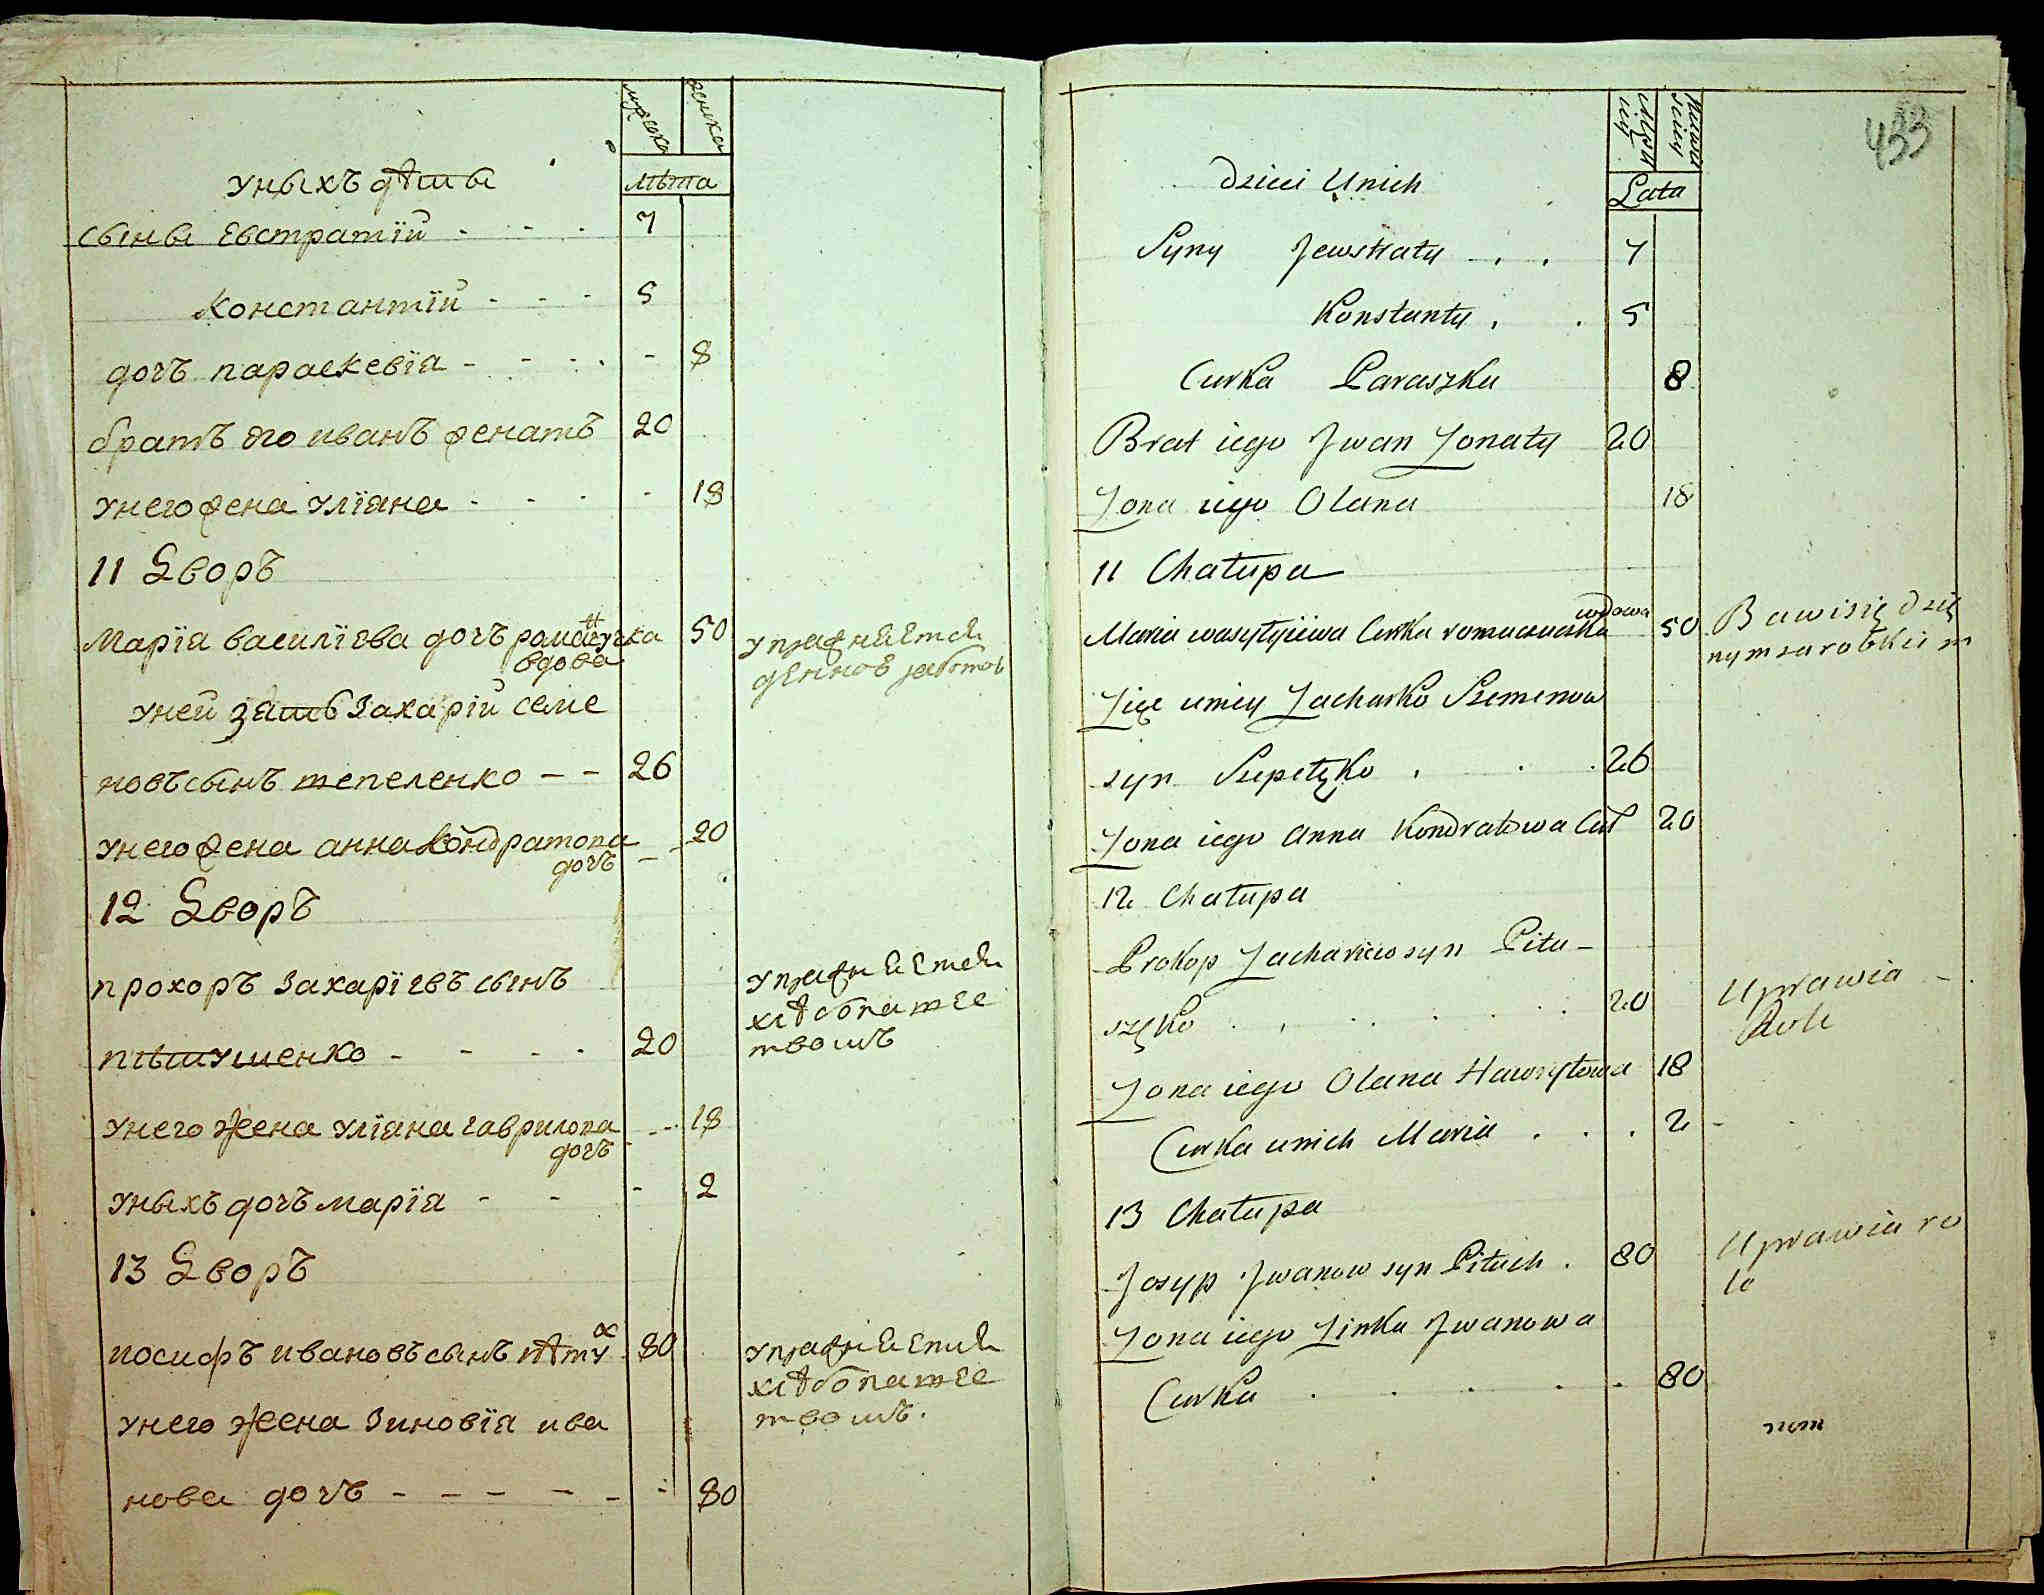 мужеска
женска
лѣта
уныхъ дѣти
сыны Евстратїй - - - 7
Константїй - - - 5
дочъ параскевїа - - - - - 8
братъ его иванъ женатъ 20
унего жена улїана - - - - 18
11 Дворъ
Марїа василїева дочъ романчучка 50
вдова
упражняется
денною работою
уней зять Захарїй семе
новъ сынъ шепеленко - - 26
унего жена анна Кондратова - - 20
дочъ
12 Дворъ
прохоръ Захарїевъ сынъ
пѣтушенко - - - - 20
упражняется
хлѣбопашес
твомъ
унего жена улїана гаврилова - - 18
дочъ
уныхъ дочъ марїа - - - 2
13 Дворъ
иосифъ ивановъ сынъ пѣтух 80
упражняется
хлѣбопашес
твомъ.
унего жена Зиновїа ива
нова дочъ - - - - - - 80
433
Lata
Dzieci Unich
Syny Jewstraty . . 7
Konstanty . . 5
Curka Paraszka 8
Brat iego Jwan Żonaty 20
Żona iego Olana 18
11 Chałupa
Maria wasyłyiiwa Curka romaczuczka wdowa 50
Bawi się dzię
nym zarobkiem
Zięć uniey Zacharko Szemenow
syn Szepełyko . . . 26
Żona iego Anna Kondratowa Cur 20
12 Chałupa
Prokop Zachariew syn Pitu-
szęko . . . . . . 20
Uprawia
Role
Żona iego Olana Hawryłowa 18
Curka unich Maria . . . 2 -
13 Chałupa
Josyp Jwanow syn Pituch . 80
Uprawia ro
le
Żona iego Zinka Jwanowa
Curka . . . . . 80